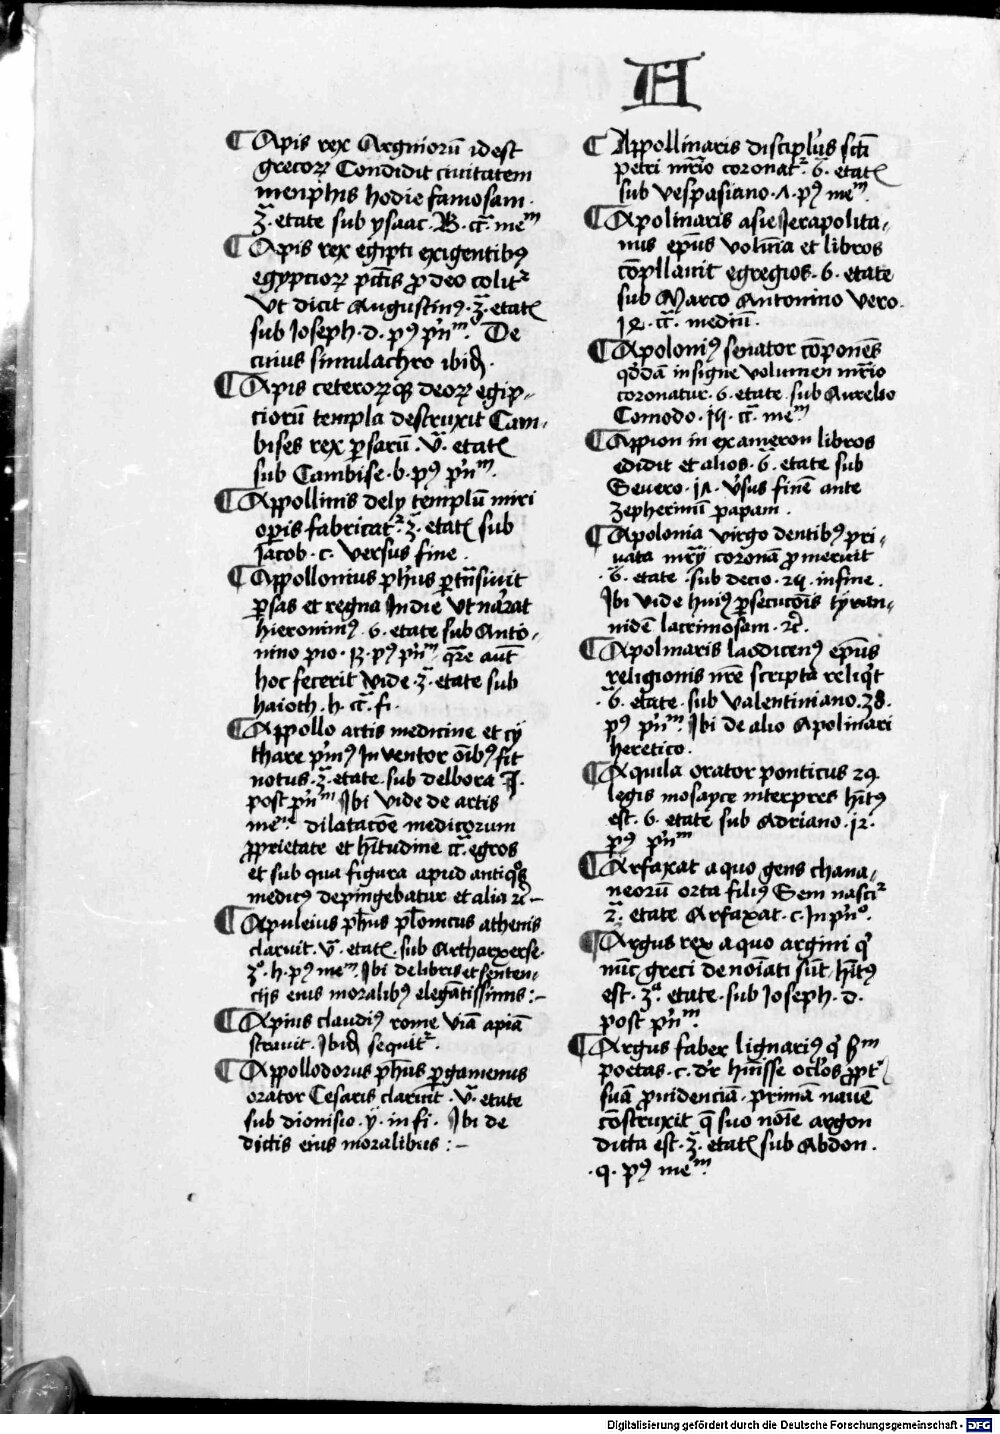 A
Apis rex Arguiorū idest
grecoꝝ Condidit ciuitatem
menphis hodie famosam.
3ᵃ. etate sub ysaac. B. cᵃ. meᵐ
Apis rex egipti exigentibꝰ
egyptioꝝ pro deo colitᵣ
Vt dicit Augustinꝰ. 3ᵃ. etate
sub Ioseph. d. pꝰ pⁱnᵐ. De
cuius simulachro ibid.
Apis ceteroꝝqꝫ deoꝝ egip-
ciorū templa destruxit Cam-
bises rex ꝑsarū. v. etate
sub Cambise. b. pꝰ pⁱnᵐ.
Appollinis dely templū miri
oꝑis fabricatᵣ. 3ᵃ. etate sub
Jacob. c. versus fine.
Appollonius ph̄us ꝑtrāsiuit
ꝑsas et regna Indie vt narrat
hieronimꝰ. 6. etate sub Anto-
nino pio. pꝰ pⁱnᵐ. qᵃre aūt
hoc fecerit vide. 3ᵃ. etate sub
haioth. h. cᵃ. fi.
Appollo artis medicine et cy
thare pⁱmꝰ Inventor oībꝰ fit
notus. 3ᵃ. etate. sub delbora
post pⁱnᵐ Ibi vide de artis
meⁿᵉ dilatacōe medicorum
ꝓprietate et hītudine cᵃ. egros
et sub qua figura apud antiqᵒs
medicꝰ depingebatur et alia ꝛc̄ -
Apuleius ph̄us pl̄onicus athenis
claruit. v. etate. sub Artharxerse.
3ᵒ. h. pꝰ meᵐ. Ibi de libris et senten-
ciis eius moralibꝰ elegātissimis :-
Apius claudiꝰ rome viā apiā
strauit. Ibid sequitᵣ.
Appollodorus ph̄us ꝑgamenus
orator Cesaris claruit. v. etate
sub dionisio. y. in fi. Ibi de
dictis eius moralibus :-
Appollinaris discipl'us sc̄ti
petri mr̄io coronatᵣ. 6. etate
sub vespasiano. ʌ. pꝰ meᵐ.
Apolinaris asie Ierapolita-
nus ep̄us volūia et libros
cōpllauit egregios. 6. etate
sub Marco Antonino vero.
cᵃ. mediū.
Apoloniꝰ senator cōponēs
qᵒdā insigne volumen mr̄io
coronatur. 6. etate. sub Aurelio
Comodo. cᵃ. meᵐ
Appion in exameron libros
edidit et alios. 6. etate sub
Seuero. 1ʌ. v'sus finē ante
Zepherinū papam.
Apolonia virgo dentibꝰ pri-
uata mr̄ÿ coronā ꝓmeruit
. 6. etate. sub decio. 24. in fine.
Ibi vide huiꝰ ꝑsecucōis tyran-
nidē lacrimosam. ꝛc̄.
Apolinaris laodicenꝰ ep̄us
religionis nr̄e scripta reliqᵗ
. 6. etate. sub valentiniano. 38.
pꝰ pⁱnᵐ. Ibi de alio Apolinari
heretico.
Aquila orator ponticus 29.
legis mosayce interpres hītꝰ
est. 6. etate sub Adriano. 12.
pꝰ pⁱnᵐ
Arfaxat a quo gens chana-
neorū orta filiꝰ Sem nascitᵣ
2ᵃ. etate Arfaxat. c. In pⁱnᵒ.
Argus rex a quo argini qⁱ
nūc greci de noīati sūt hītꝰ
est. 3ᵃ. etate. sub Ioseph. d.
post pⁱnᵐ.
Argus faber lignariꝰ qⁱ scdᵐ
poetas. c. dr hūisse oclos ꝓptᵣ
suā ꝓuidenciā. primā nauē
cōstruxit q̄ suo noīe argon
dicta est. 3ᵃ. etate sub Abdon.
. q. pꝰ meᵐ.
Digitalisierung gefördert durch die Deutsche Forschungsgemeinschaft - DFG